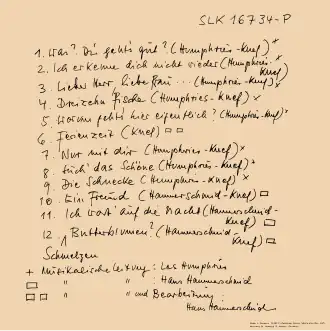 SLK 16734-P
1. Was? Dir geht's gut? (Humphries-Knef) x
2. Ich erkenne dich nicht wieder (Humphries-
Knef) x
3. Lieber Herr, liebe Frau... (Humphries-Knef) x
4. Dreizehn Fische (Humphries-Knef) x
5. Worum geht's hier eigentlich? (Humphries-Knef) x
6. Ferienzeit (Knef) □ □
7. Nur mit dir (Humphries-Knef) x
8. Such' das Schöne (Humphries-Knef) x
9. Die Schnecke (Humphries-Knef) x
10. Ein Freund (Hammerschmid-Knef) □
11. Ich wart' auf die Nacht (Hammerschmid-
Knef) □
12. Butterblumen? (Hammerschmid-
Knef) □
+ Musikalische Leitung: Les Humphries
□ " : Hans Hammerschmid
□ □ " und Bearbeitung:
Hans Hammerschmid